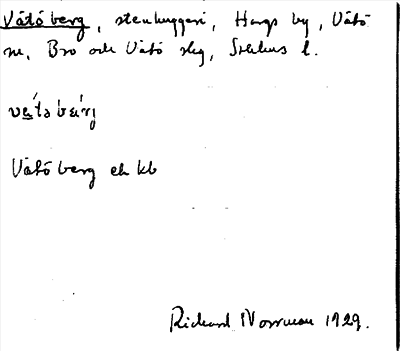 Vätö berg, stenhuggeri, Hargs by, Vätö
sn, Bro och Vätö skg, Sthlms l.
Vätö berg ek kb
Rickard Norrman 1929.